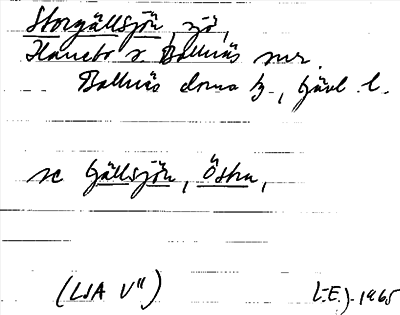 Storgällsjön, sjö,
Hanebo o. Bollnäs snr.
Bollnäs doms h., Gävl. l.
se Gällsjön, Östra,
(LSA V")
L-E.J. 1965